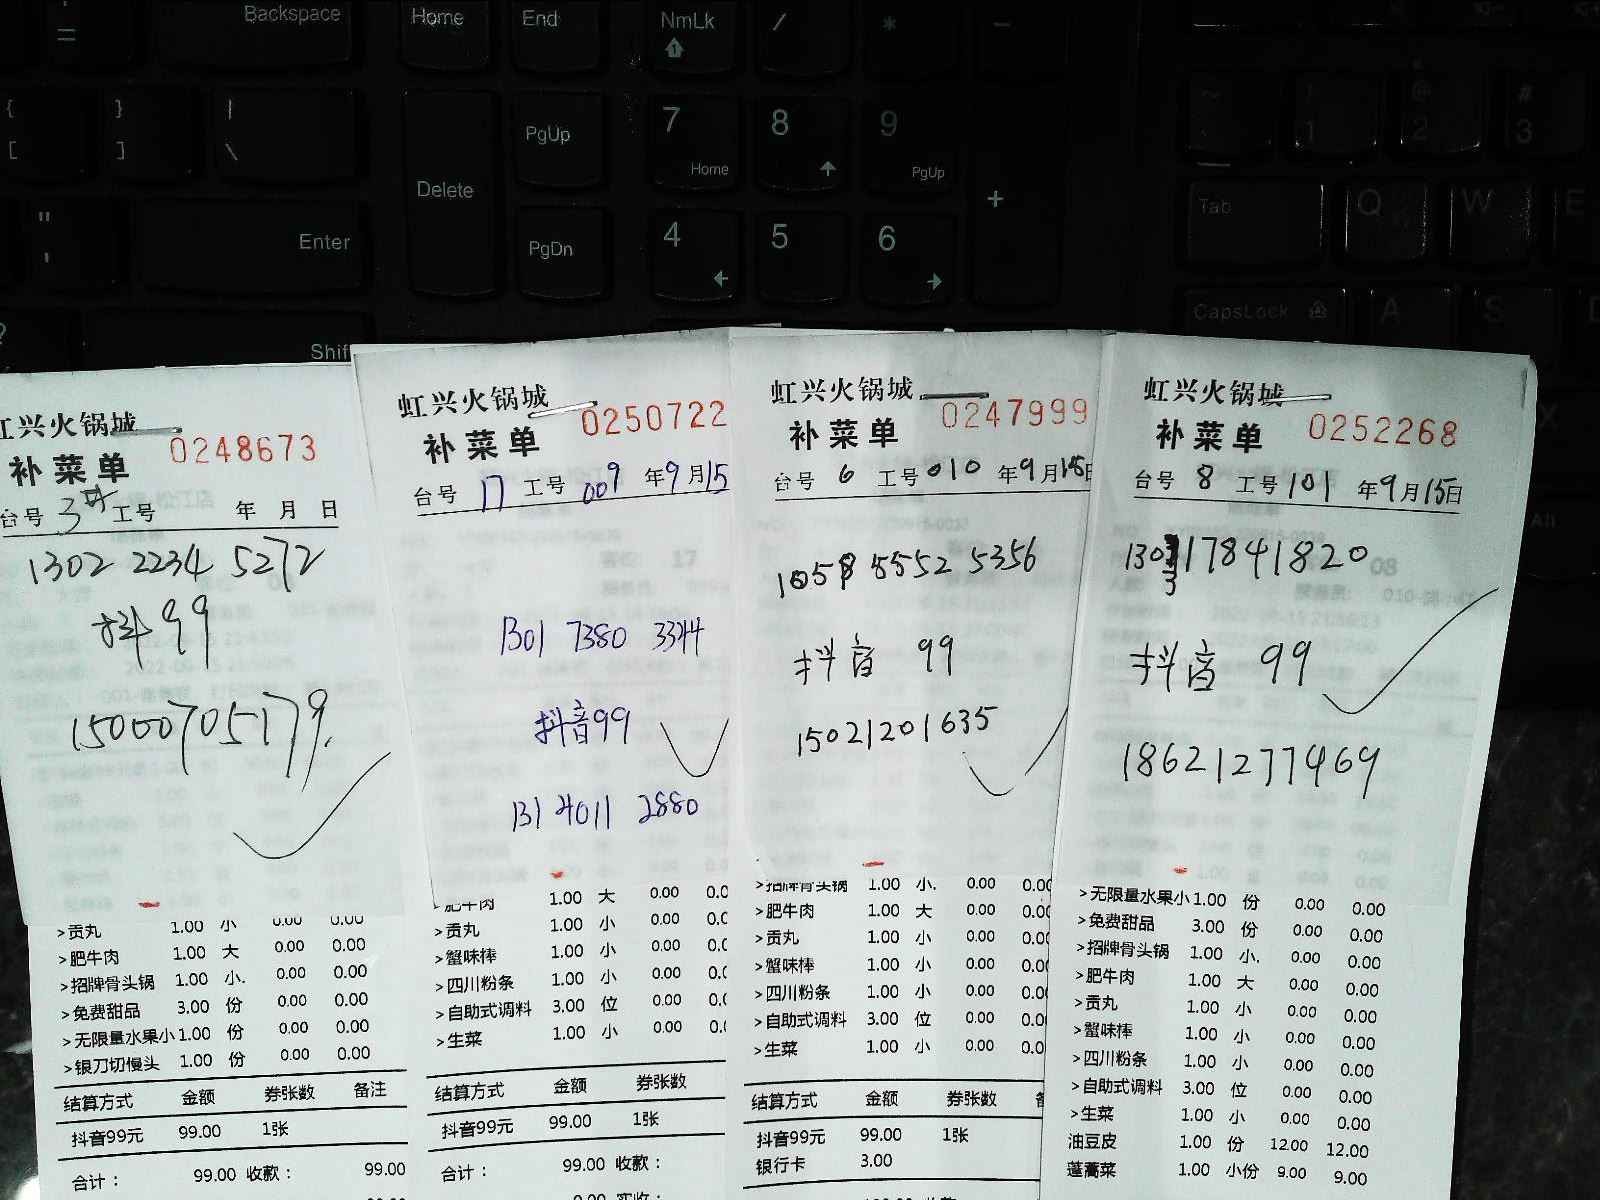 Backspace Home End NmLk / * -
Delete PgUp 7 Home 8 9 PgUp +
Enter PgDn 4 5 6
Shift
~ 1 @ 2 # 3
Tab Q W E
CapsLock A S
X
Alt
虹兴火锅城
0248673
补菜单
台号 3 工号 年 月 日
1302 2234 5272
抖99
15000705179.
>贡丸 1.00 小 0.00 0.00
>肥牛肉 1.00 大 0.00 0.00
>招牌骨头锅 1.00 小. 0.00 0.00
>免费甜品 3.00 份 0.00 0.00
>无限量水果小 1.00 份 0.00 0.00
>银刀切馒头 1.00 份 0.00 0.00
结算方式 金额 券张数 备注
抖音99元 99.00 1张
合计: 99.00 收款: 99.00
虹兴火锅城
0250722
补菜单
台号 17 工号 009 年9月15
1301 7380 3344
抖音99
131 4011 2880
>肥牛肉 1.00 大 0.00 0.0
>贡丸 1.00 小 0.00 0.0
>蟹味棒 1.00 小 0.00 0.0
>四川粉条 1.00 小 0.00 0.0
>自助式调料 3.00 位 0.00 0.0
>生菜 1.00 小 0.00 0.0
结算方式 金额 券张数
抖音99元 99.00 1张
合计: 99.00 收款:
虹兴火锅城
0247999
补菜单
台号 6 工号 010 年9月15日
1058 5552 5356
抖音 99
15021201635
>招牌骨头锅 1.00 小. 0.00 0.00
>肥牛肉 1.00 大 0.00 0.00
>贡丸 1.00 小 0.00 0.00
>蟹味棒 1.00 小 0.00 0.00
>四川粉条 1.00 小 0.00 0.00
>自助式调料 3.00 位 0.00 0.00
>生菜 1.00 小 0.00 0.0
结算方式 金额 券张数
抖音99元 99.00 1张
银行卡 3.00
虹兴火锅城
0252268
补菜单
台号 8 工号 101 年9月15日
130317841820
抖音 99
18621277469
>无限量水果小 1.00 份 0.00 0.00
>免费甜品 3.00 份 0.00 0.00
>招牌骨头锅 1.00 小. 0.00 0.00
>肥牛肉 1.00 大 0.00 0.00
>贡丸 1.00 小 0.00 0.00
>蟹味棒 1.00 小 0.00 0.00
>四川粉条 1.00 小 0.00 0.00
>自助式调料 3.00 位 0.00 0.00
>生菜 1.00 小 0.00 0.00
油豆皮 1.00 份 12.00 12.00
蓬蒿菜 1.00 小份 9.00 9.00